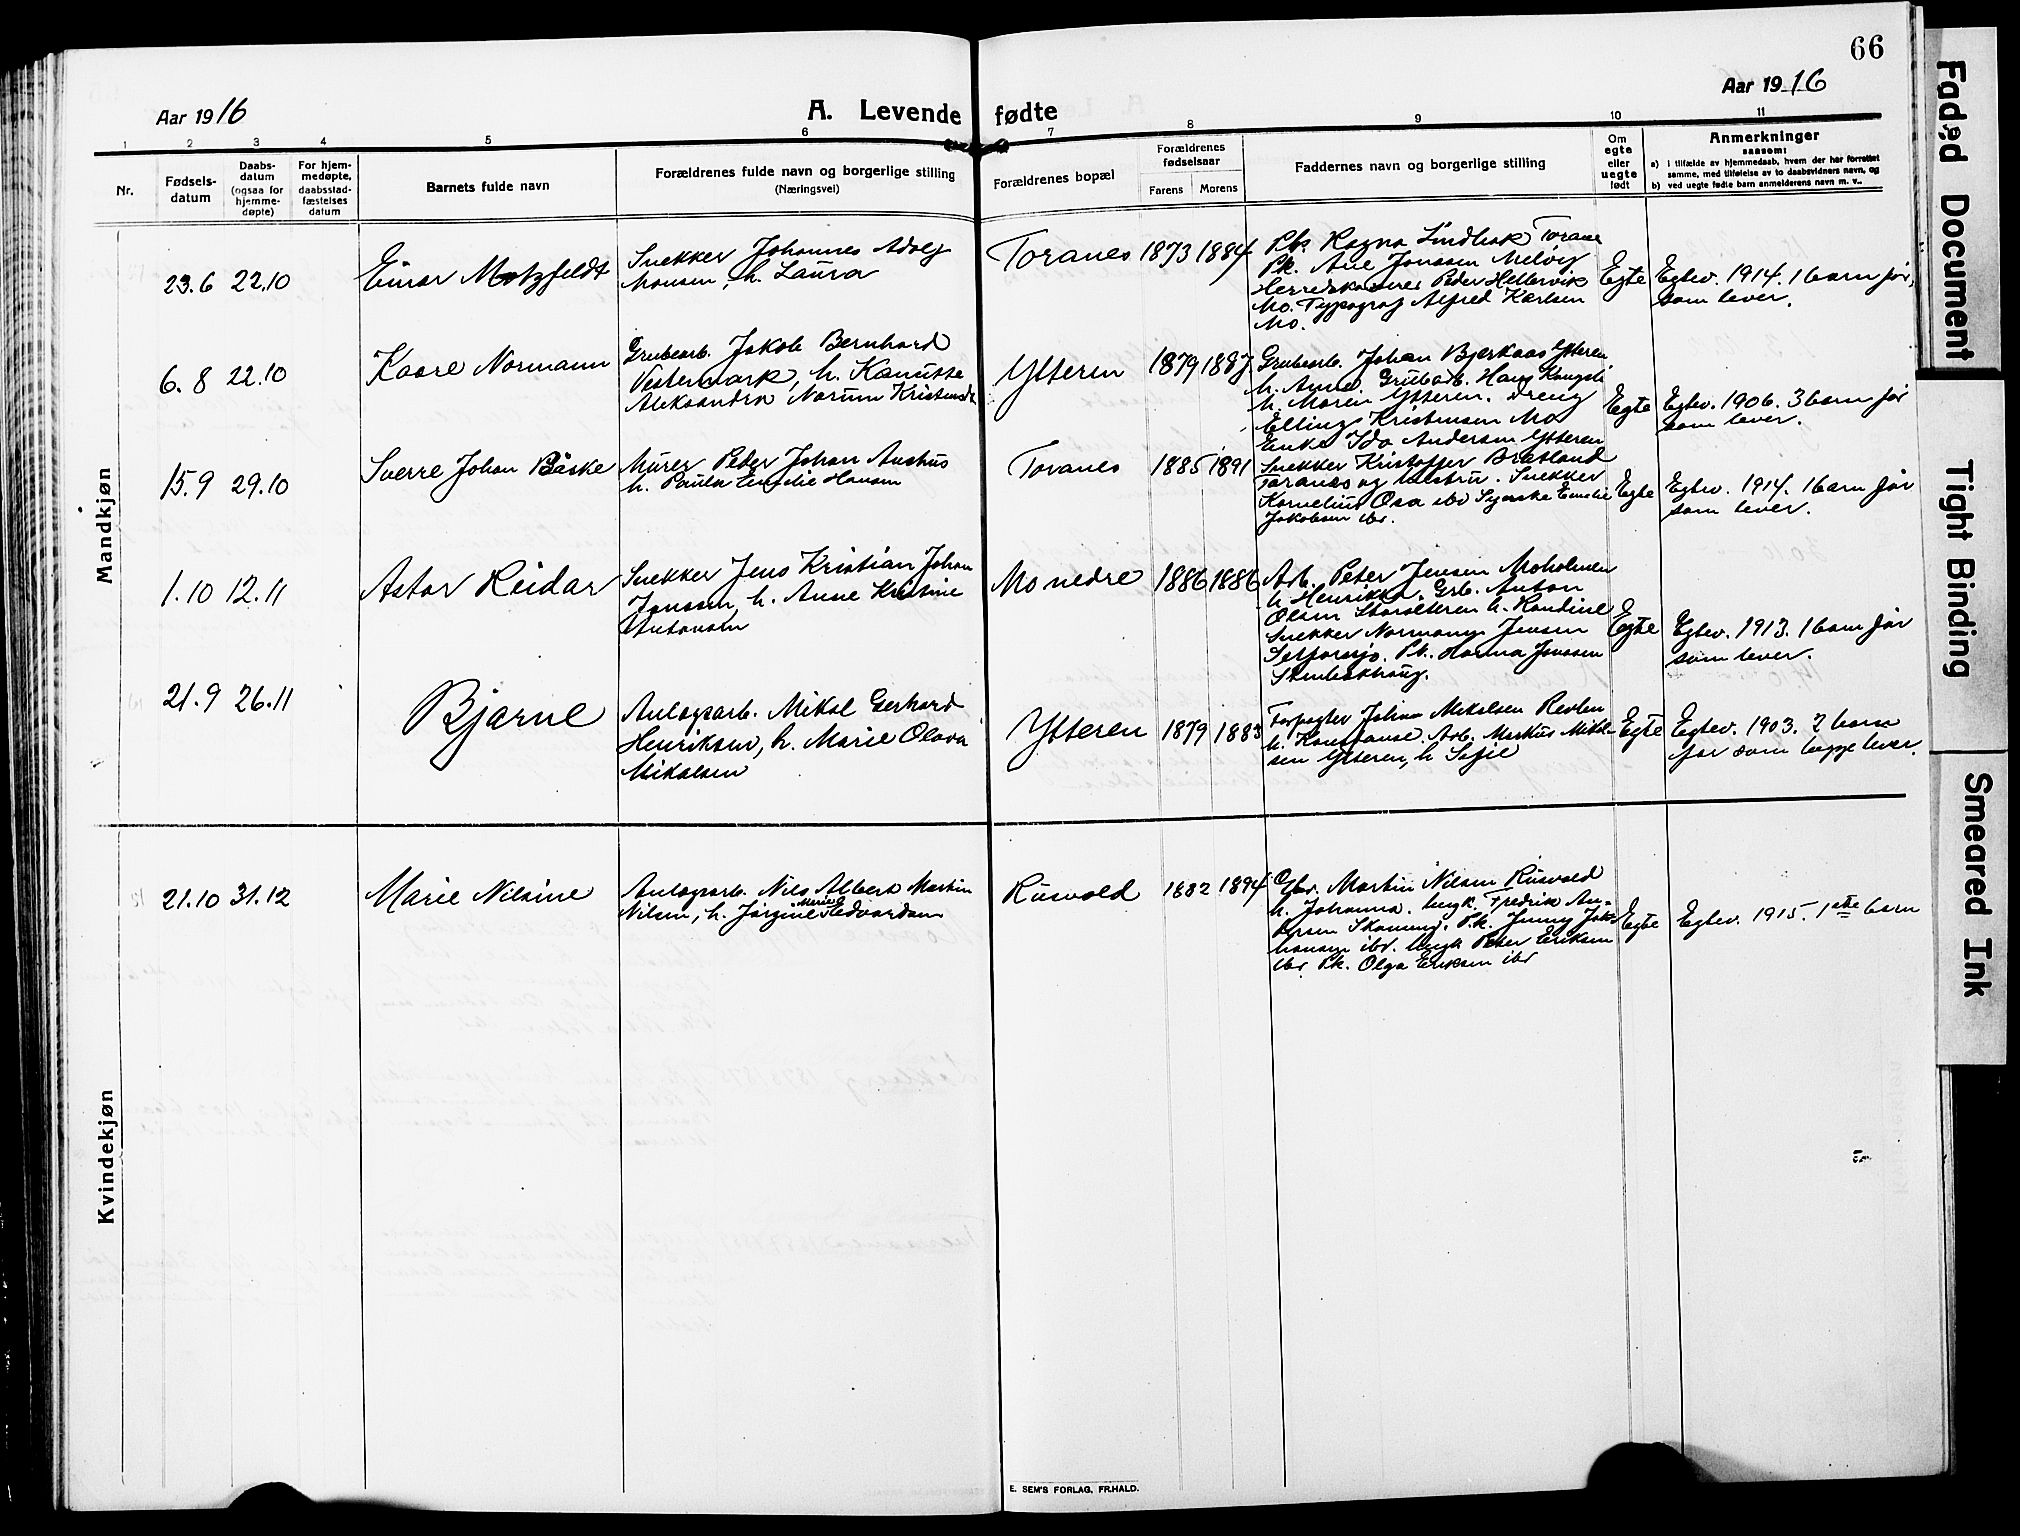 66
Aar 1916
A. Levende fødte
Aar 1916
1 2 3 4 5 6 7 8 9 10 11
Nr.
Fødsels-
datum
Daabs-
datum
(ogsaa for
hjemme-
døpte)
For hjem-
medøpte,
daabsstad-
fæstelses
datum
Barnets fulde navn
Forældrenes fulde navn og borgerlige stilling
(Næringsvei)
Forældrenes bopæl
Forældrenes
fødselsaar
Farens Morens
Faddernes navn og borgerlige stilling
Om
egte
eller
uegte
født
Anmerkninger
saasom:
a) i tilfælde av hjemmedaab, hvem der har forrettet
samme, med tilføielse av to daabsvidners navn, og
b) ved uegte fødte barn anmelderens navn m. v..
Mandkjøn
23.6 22.10
Einar Motzfeldt
Snekker Johannes Adolf
Monsen, h. Laura
Toranes 1873 1884
Pk. Ragna Lindbak Torane
Pk. Ane Jonssen Meløy
Herredskasserer Peder Hellervik
Mo. Typograf Alfred Karlsen
Mo.
Egte
Egtev. 1914. 1 barn før,
som lever.
6.8 22.10
Kaare Normann
Grubearb. Jakob Bernhard
Vestermark, h. Kanutte
Aleksandra Norum
Ytteren 1879 1887
Grubearb. Johan Bjerkaas Ytteren
h. Anna. Grubearb. Hans
h. Maren Ytteren. Dreng
Elling Kristensen Mo
Enke Ida Andersen Ytteren
Egte
Egtev. 1906. 3 barn før
som lever.
15.9 29.10
Sverre Johan Båske
Murer Peder Johan Aushus
h. Paula Emilie Hansen
Toranes 1885 1891
Snekker Kristoffer Bredland
Toranes og hustru. Snekker
Kornelius Osa ibd Syerske Emelie
Jakobsen ibr.
Egte
Egtev. 1914. 1 barn før
som lever.
1.10 12.11
Astor Reidar
Snekker Jens Kristian Johan
Jonssen, h. Anne Kristine
Antonsen
Mo nedre 1886 1886
Arb. Peter Jensen Moholmen
h. Henrikka. Grb. Anton
Olsen Storalteren h. Randine
Snekker Normann Jensen
Selforsjo. Pk. Hanna Jonssen
Stenbækhaug.
Egte
Egtev. 1913. 1 barn før
som lever.
21.9 26.11
Bjarne
Anlægsarb. Mikal Gerhard
Henriksen, h. Marie Olava
Mikalsen
Ytteren 1879 1883
Forpagter Johan Mikalsen Revlen
h. Konstanse. Arb. Markus Mikal-
sen Ytteren, h Sofie
Egte
Egtev. 1903. 2 barn
før som begge lever.
Kvindekjøn
21.10 31.12
Marie Nilsine
Anlægsarb. Nils Albert Martin
Nilsen, h. Jørgine Marie Edvardsen
Rusvold 1882 1894
Gbr. Martin Nilsen Rusvold
h. Johanna. Ungk. Fredrik An-
dersen Skonseng. Pk. Jenny Joh-
hansen ibd. Ungk Peter Eriksen
ibd Pk. Olga Eriksen ibd
Egte
Egtev. 1915. 1ste barn
E. SEM'S FORLAG, FR.HALD.
Faded Document
Tight Binding
Smeared Ink